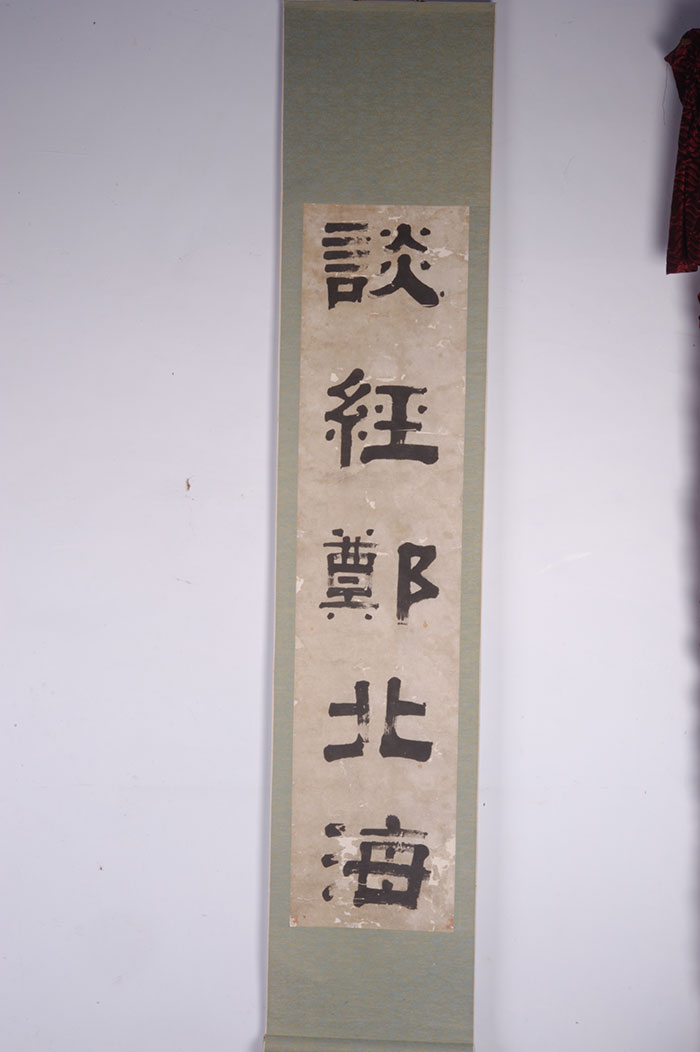 談經鄭北海